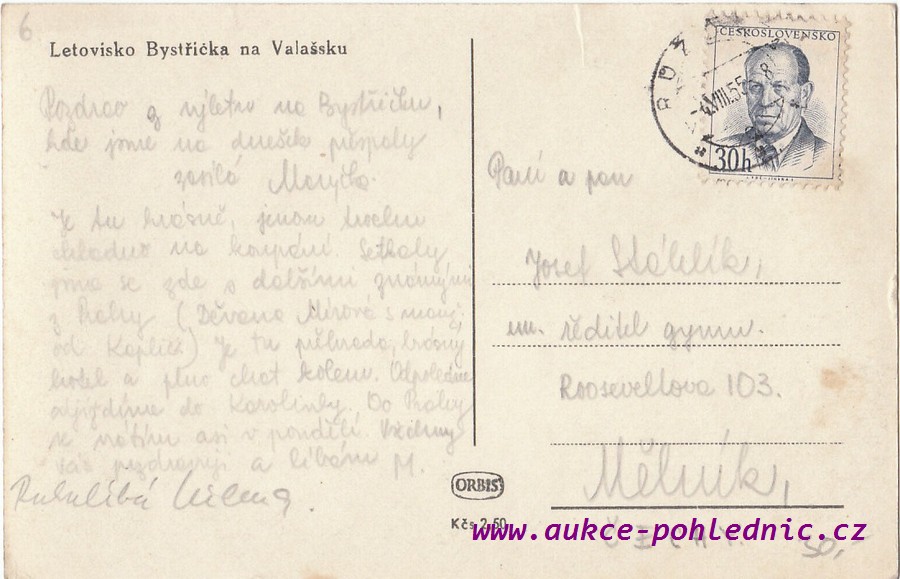 6
Letovisko Bystřička na Valašsku
Pozdrav z výletu na Bystřičku,
kde jsme na dnešek přespaly
zasílá
Je tu krásně, jenom trochu
chladno na koupání. Setkaly
jsme se zde s dalšími známými
z Prahy (Děvana Mírová s manž.
od Kaplick) Je tu přehrada, krásný
hotel a plno chat kolem. Odpoledne
odjíždíme do Karolinky. Do Prahy
se vrátím asi v pondělí. Všechny
vás pozdravuji a líbám M.
Rukulíbá
ČESKOSLOVENSKO
30h
-4.VIII.55-8
Paní a pan
Josef Stáhlík,
em. ředitel gymn.
Rooseveltova 103.
Mělník,
ORBIS
Kčs 2,50
www.aukce-pohlednic.cz
50,-